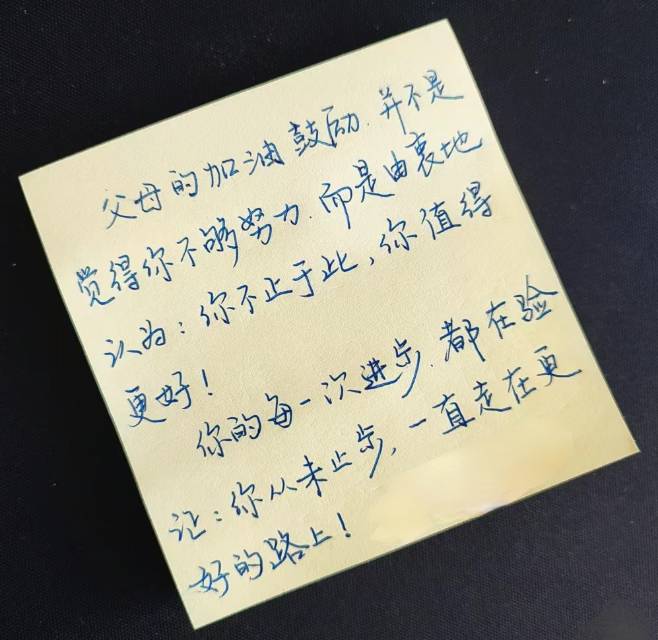 父母的加油鼓励.并不是
觉得你不够努力.而是由衷地
认为：你不止于此，你值得
更好！
你的每一次进步.都在验
证：你从未止步,一直走在更
好的路上！